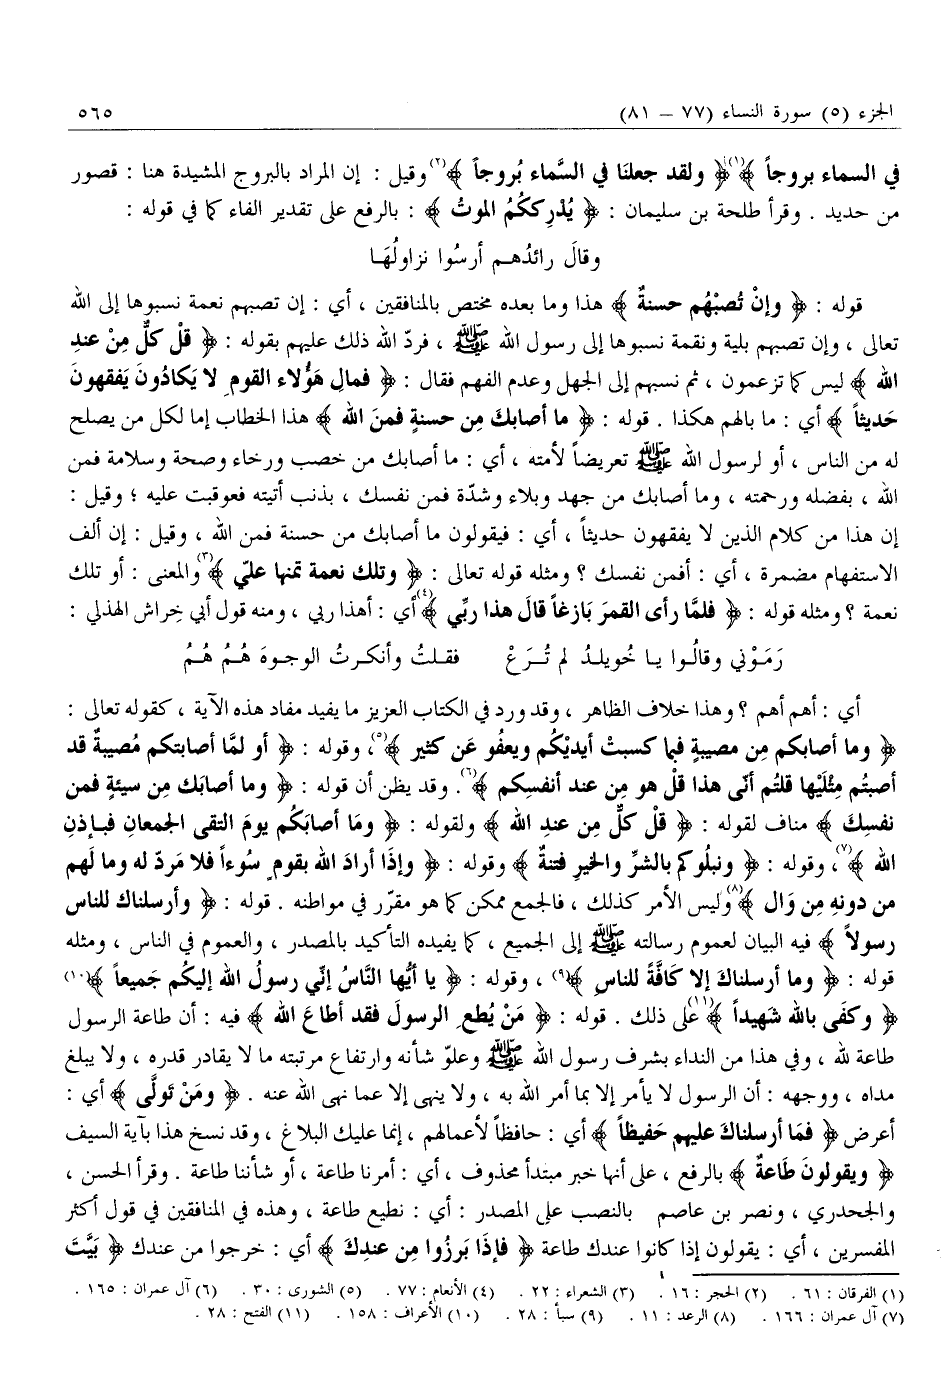 الجزء (٥) سورة النساء (٧٧ – ٨١) ٥٦٥
في السماء بروجاً ﴾(١)﴿ ولقد جعلنَا في السَّماء بُروجاً ﴾(٢)وقيل : إن المراد بالبروج المشيدة هنا : قصور
من حديد . وقرأ طلحة بن سليمان : ﴿ يُدْرِككُمُ الموتُ ﴾ : بالرفع على تقدير الفاء كما في قوله :
وقالَ رائدُهـم أرسُوا نزاولُهَـا
قوله : ﴿ وإنْ تُصبْهُم حسنةٌ ﴾ هذا وما بعده مختص بالمنافقين ، أي : إن تصبهم نعمة نسبوها إلى الله
تعالى ، وإن تصبهم بلية ونقمة نسبوها إلى رسول الله ﷺ ، فردّ الله ذلك عليهم بقوله : ﴿ قلْ كلٌّ مِنْ عندِ
الله ﴾ ليس كما تزعمون ، ثم نسبهم إلى الجهل وعدم الفهم فقال : ﴿ فمالِ هَؤُلاء القومِ لا يَكادُونَ يَفقهونَ
حَديثاً ﴾ أي : ما بالهم هكذا . قوله : ﴿ ما أصابكَ مِن حسنةٍ فمنَ الله ﴾ هذا الخطاب إما لكل من يصلح
له من الناس ، أو لرسول الله ﷺ تعريضاً لأمته ، أي : ما أصابك من خصب ورخاء وصحة وسلامة فمن
الله ، بفضله ورحمته ، وما أصابك من جهد وبلاء وشدّة فمن نفسك ، بذنب أتيته فعوقبت عليه ؛ وقيل :
إن هذا من كلام الذين لا يفقهون حديثاً ، أي : فيقولون ما أصابك من حسنة فمن الله ، وقيل : إن ألف
الاستفهام مضمرة ، أي : أفمن نفسك ؟ ومثله قوله تعالى : ﴿ وتلك نعمة تمنها عليّ ﴾(٣)والمعنى : أو تلك
نعمة ؟ ومثله قوله : ﴿ فلمَّا رأى القمرَ بَازغاً قالَ هذا ربِّي ﴾(٤)أي : أهذا ربي ، ومنه قول أبي خِراش الهذلي :
رَمَـوْني وقالُـوا يـا خُويلـدُ لم تُـرَعْ فقـلتُ وأنكـرتُ الوجـوهَ هُـمُ هُـمُ
أي : أهم أهم ؟ وهذا خلاف الظاهر ، وقد ورد في الكتاب العزيز ما يفيد مفاد هذه الآية ، كقوله تعالى :
﴿ وما أصابكم مِن مصيبةٍ فبما كسبتْ أيديْكُم ويعفُو عَن كثير ﴾(٥)، وقوله : ﴿ أو لمَّا أصابتكم مُصيبةٌ قد
أصبتُم مِثْلَيْها قلتُم أنّى هذا قلْ هو مِن عند أنفسِكم ﴾(٦). وقد يظن أن قوله : ﴿ وما أصابَك مِن سيئةٍ فمن
نفسِكَ ﴾ مناف لقوله : ﴿ قلْ كلٌّ مِن عندِ الله ﴾ ولقوله : ﴿ ومَا أصابَكُم يومَ التقى الجمعانِ فبـإذنِ
الله ﴾(٧)، وقوله : ﴿ ونبلُوكم بالشرِّ والخيرِ فتنةٌ ﴾ وقوله : ﴿ وإذَا أرادَ الله بقومٍ سُوءاً فلا مَردّ له وما لَهم
من دونهِ مِن وَال ﴾(٨)وليس الأمر كذلك ، فالجمع ممكن كما هو مقرّر في مواطنه . قوله : ﴿ وأرسلناك للناس
رسولاً ﴾ فيه البيان لعموم رسالته ﷺ إلى الجميع ، كما يفيده التأكيد بالمصدر ، والعموم في الناس ، ومثله
قوله : ﴿ وما أرسلناكَ إلا كافَّةً للناسِ ﴾(٩) ، وقوله : ﴿ يا أيُّها النَّاسُ إنّي رسولُ الله إليكُم جَميعاً ﴾(١٠)
﴿ وكفَى بالله شَهيداً ﴾(١١)على ذلك . قوله : ﴿ مَنْ يُطعِ الرسولَ فقد أطاعَ الله ﴾ فيه : أن طاعة الرسول
طاعة لله ، وفي هذا من النداء بشرف رسول الله ﷺ وعلوّ شأنه وارتفاع مرتبته ما لا يقادر قدره ، ولا يبلغ
مداه ، ووجهه : أن الرسول لا يأمر إلا بما أمر الله به ، ولا ينهى إلا عما نهى الله عنه . ﴿ ومَنْ تَولَّى ﴾ أي :
أعرض ﴿ فمَا أرسلناكَ عليهم حَفيظاً ﴾ أي : حافظاً لأعمالهم ، إنما عليك البلاغ ، وقد نسخ هذا بآية السيف
﴿ ويقولونَ طَاعةٌ ﴾ بالرفع ، على أنها خبر مبتدأ محذوف ، أي : أمرنا طاعة ، أو شأننا طاعة . وقرأ الحسن ،
والجحدري ، ونصر بن عاصم بالنصب على المصدر : أي : نطيع طاعة ، وهذه في المنافقين في قول أكثر
المفسرين ، أي : يقولون إذا كانوا عندك طاعة ﴿ فإذَا بَرزُوا مِن عندِكَ ﴾ أي : خرجوا من عندك ﴿ بَيَّتَ
(١) الفرقان : ٦١ . (٢) الحجر : ١٦ . (٣) الشعراء : ٢٢ . (٤) الأنعام : ٧٧ . (٥) الشورى : ٣٠ . (٦) آل عمران : ١٦٥ .
(٧) آل عمران : ١٦٦ . (٨) الرعد : ١١ . (٩) سبأ : ٢٨ . (١٠) الأعراف : ١٥٨ . (١١) الفتح : ٢٨ .